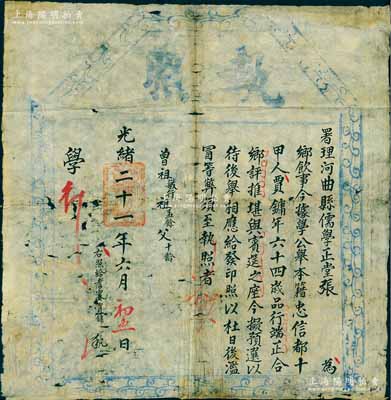 上海陽明拍賣
執照
署理河曲縣儒學正堂張 為
鄉飲事今據學公舉本籍忠信都十
甲人賈鏞年六十四歲品行端正合
鄉評推堪與賓筵之座今擬預選以
待後舉相應給發印照以杜日後濫
冒等弊須至執照者
曾祖 祖 父
光緒二十一年六月初 日
學
上海陽明拍賣